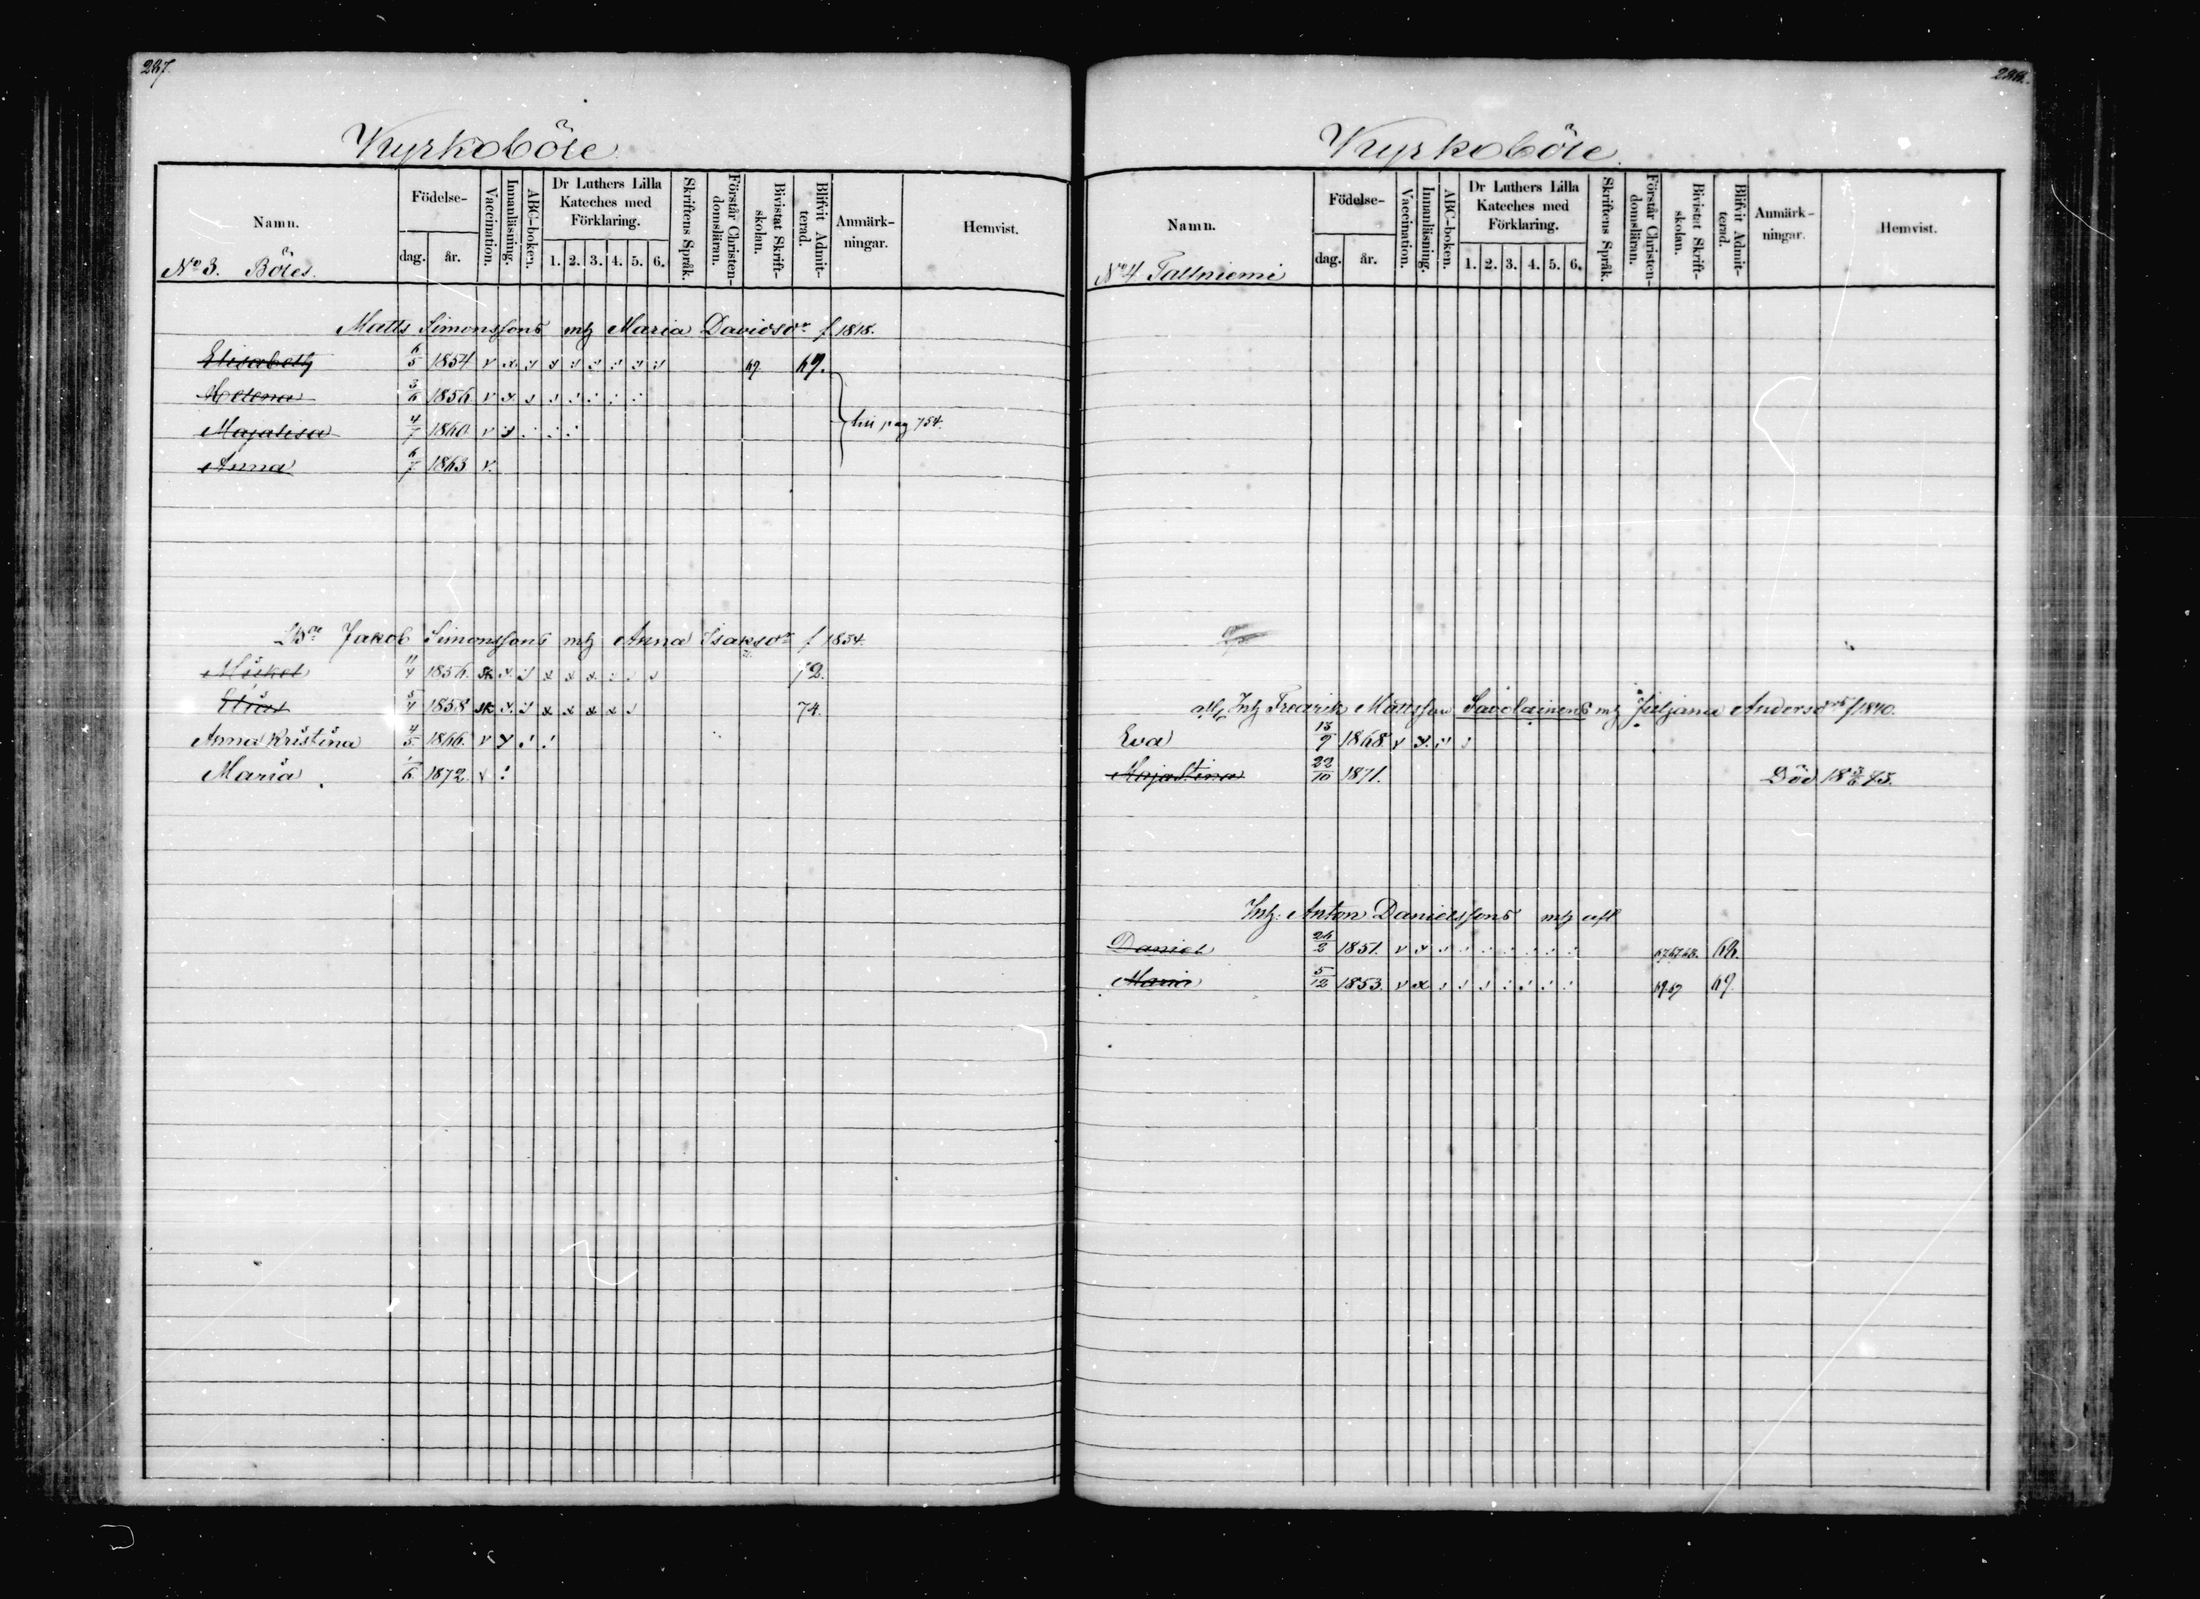 287.
Kyrkoböle
Namn.
Födelse-
dag.
år.
Vaccination.
Innanläsning.
ABC-boken.
Dr Luthers Lilla Kateches med Förklaring.
1. 2. 3. 4. 5. 6.
Skriftens Språk.
Förstår Christendomsläran.
Bivistat Skriftskolan.
Blifvit Admitterad.
Anmärkningar.
Hemvist.
No 3. Böles.
Matts Simonssons mh Maria Davidsdr f 1818.
Elisabeth 6/5 1854 v 69 69.
Helena 3/6 1856 v
Majalisa 4/7 1860 v
pag 754.
Anna 6/7 1863 v.
Jakob Simonssons mh Anna Isaksdr f 1834.
Mickel 11/4 1856. sk 72.
Elias 5/4 1858 sk 74.
Anna Kristina 4/5 1866. v
Maria 1872 v
Kyrkoböle
Namn.
Födelse-
dag.
år.
Vaccination.
Innanläsning.
ABC-boken.
Dr Luthers Lilla Kateches med Förklaring.
1. 2. 3. 4. 5. 6.
Skriftens Språk.
Förstår Christendomsläran.
Bivistat Skriftskolan.
Blifvit Admitterad.
Anmärkningar.
Hemvist.
No 4 Tallniemi
Inh Fredrik Mattsson Savolainens mh Juljana Andersdr f 1840.
Eva 13/9 1868 v
Majastina 22/10 1871. Död 18 3/6 75.
Inh: Anton Danielssons mh afl
Daniel 26/2 1851. v 68.
Maria 5/12 1853. v 69.69 69.